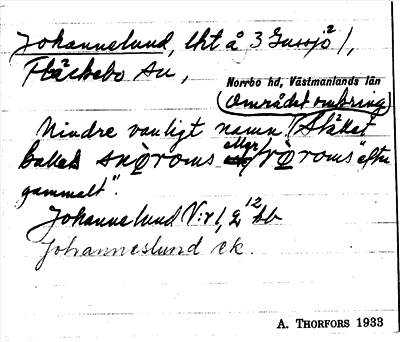 Johannelund, lht å 3 Gussjö 2/1,
Fläckebo sn,
Norrbo hd, Västmanlands län
(området omkring)
Mindre vanligt namn. Stället
kallas snöroms eller fröroms "efter
gammalt".
Johannelund V:r 1, 2 12 bb
Johanneslund ek.
A. THORFORS 1933